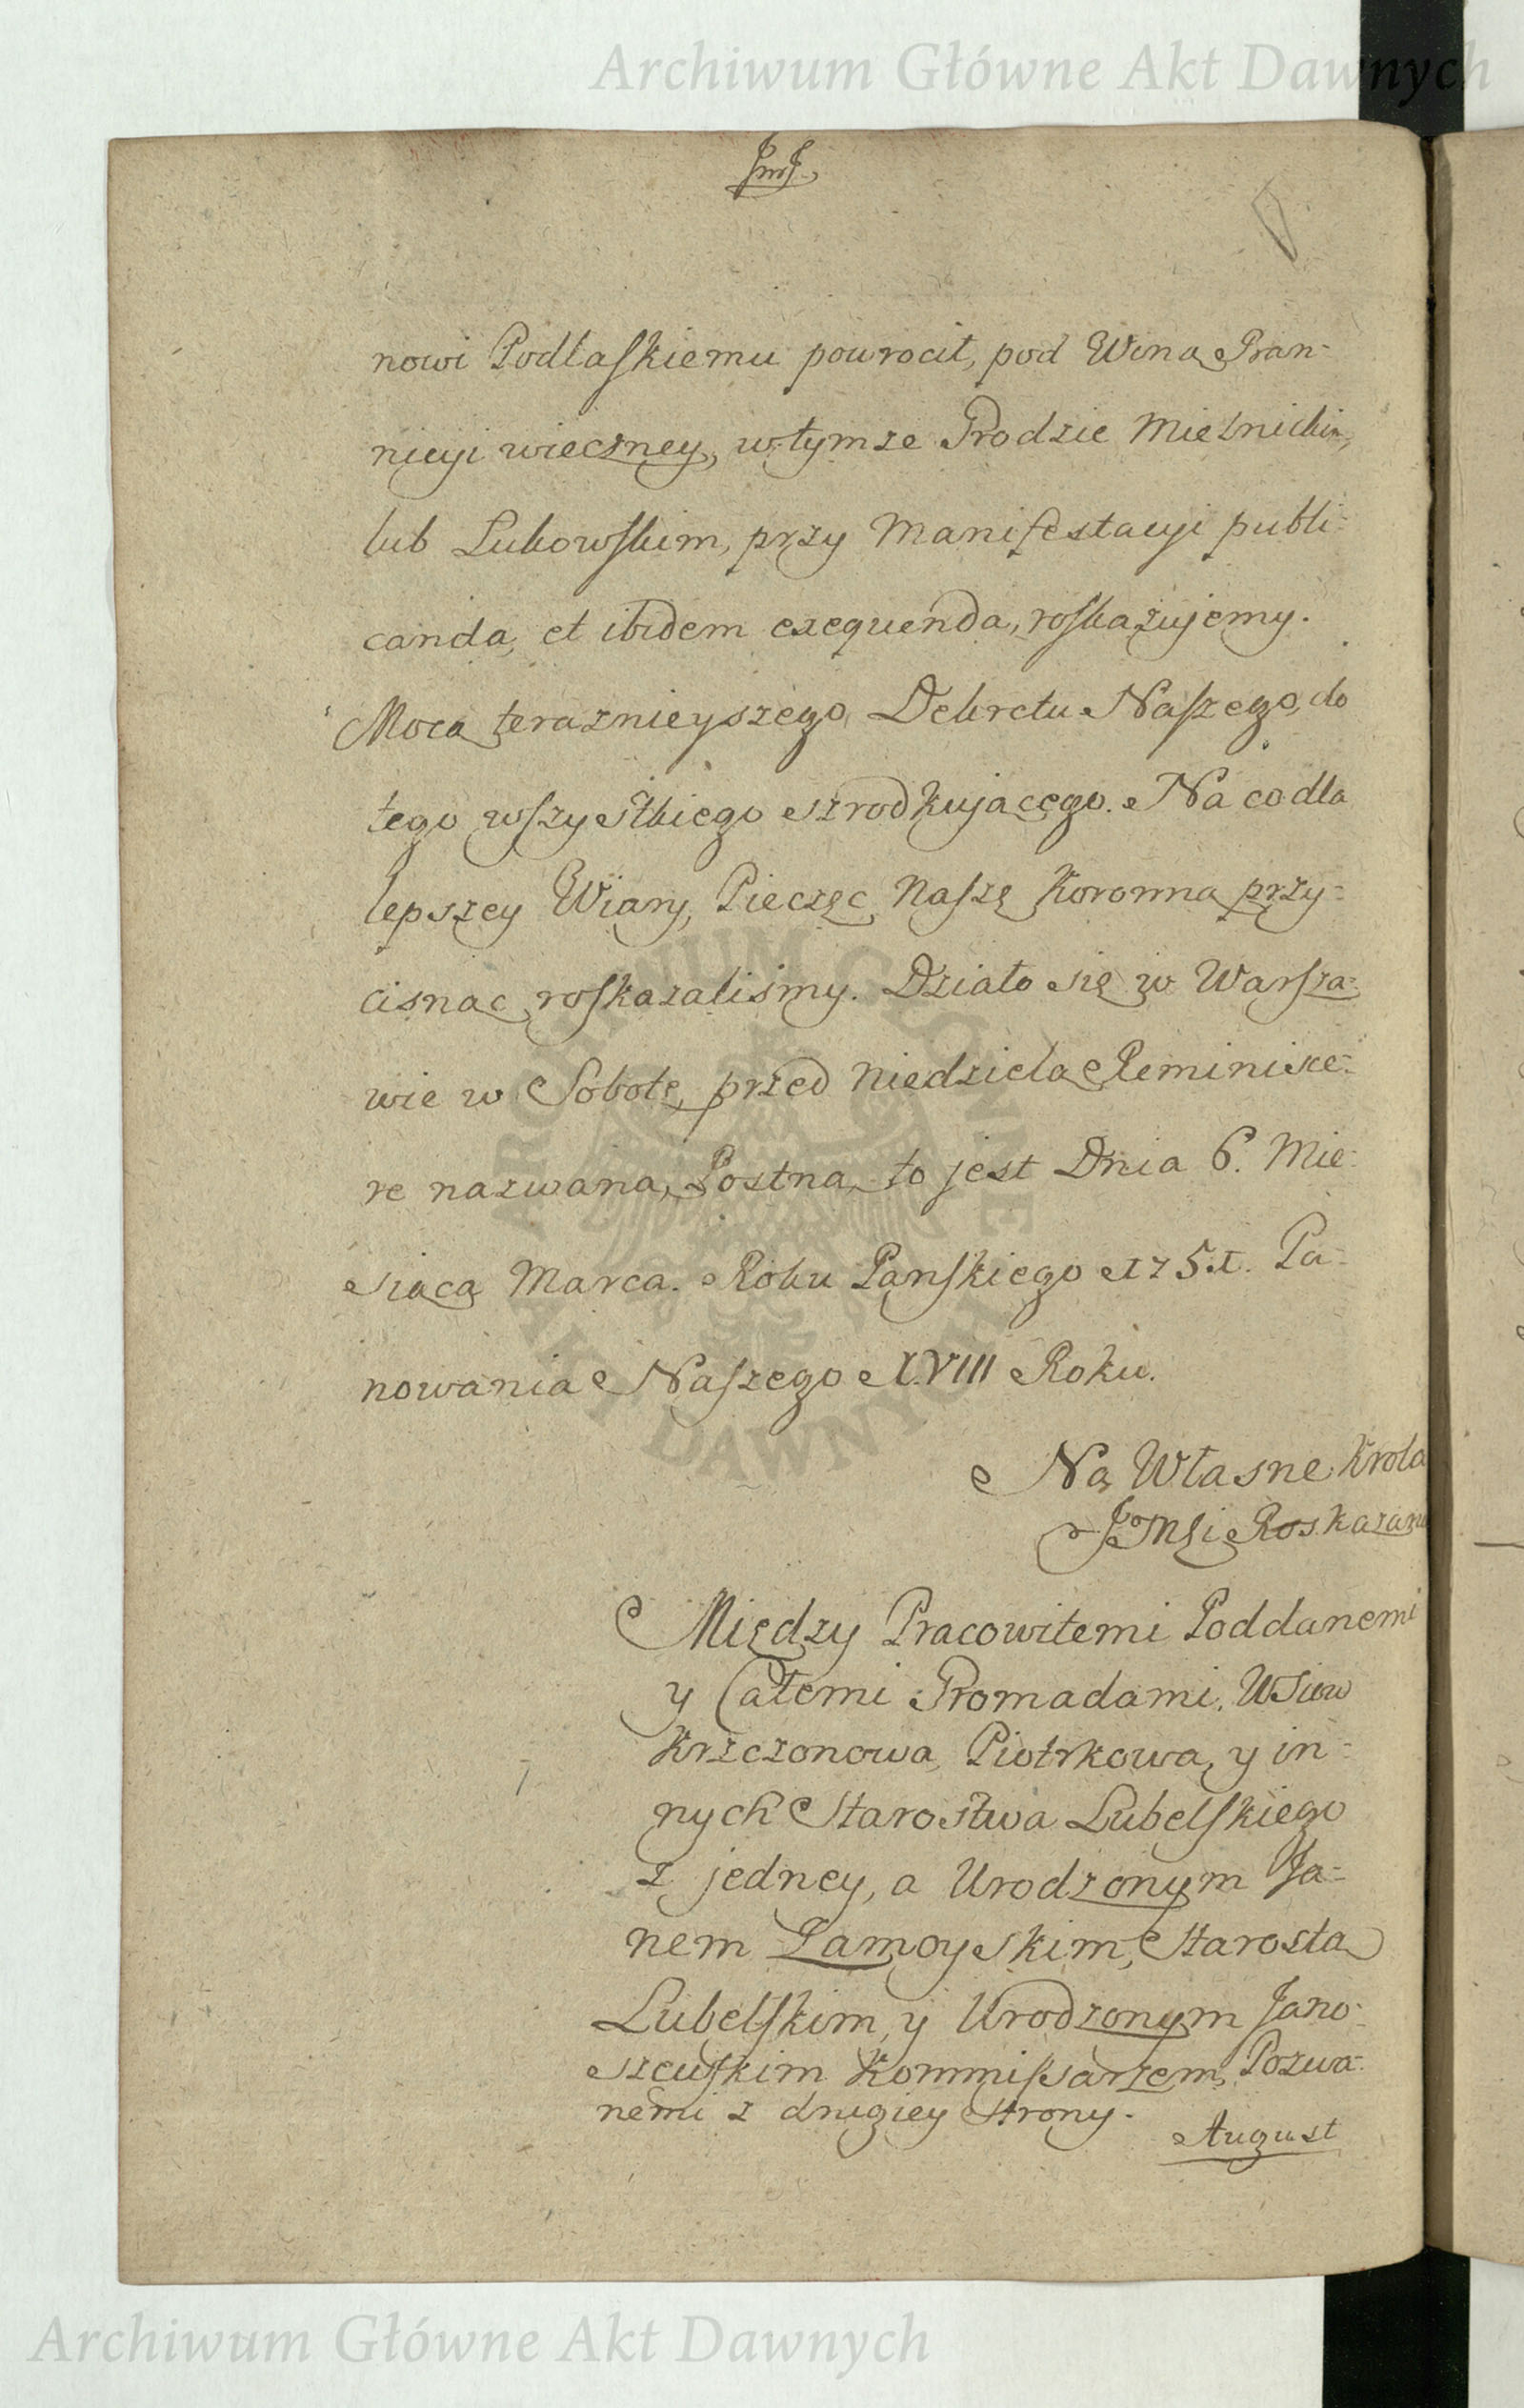 Archiwum Główne Akt Dawnych
nowi Podlaskiemu powrocił, pod Winą Ban-
nicyi wieczney, w tymze Grodzie Mielnickim,
lub Lukowskim, przy Manifestacyi publi-
canda, et ibidem exequenda, roskazujemy.
Mocą teraznieyszego Dekretu Naszego, do
tego wszystkiego szrodkującego. Na co dla
lepszey Wiary, Pieczęc Naszę Koronną przy-
cisnąc roskazalismy. Działo się w Warsza-
wie w Sobotę, przed Niedzielą Reminisce-
re nazwaną, Postną, to jest Dnia 6. Mie-
siąca Marca. Roku Panskiego 1751. Pa-
nowania Naszego XVIII Roku.
Na Własne Krola
JoMsi Roskazan
Między Pracowitemi Poddanemi
y Całemi Gromadami, Wsiow
Krzczonowa, Piotrkowa, y in-
nych Starostwa Lubelskiego
z jedney, a Urodzonym Ja-
nem Zamoyskim, Starostą
Lubelskim, y Urodzonym Jano-
szewskim Kommissarzem, Pozwa-
nemi z drugiey strony.
August
ARCHIWUM GŁÓWNE AKT DAWNYCH
Archiwum Główne Akt Dawnych